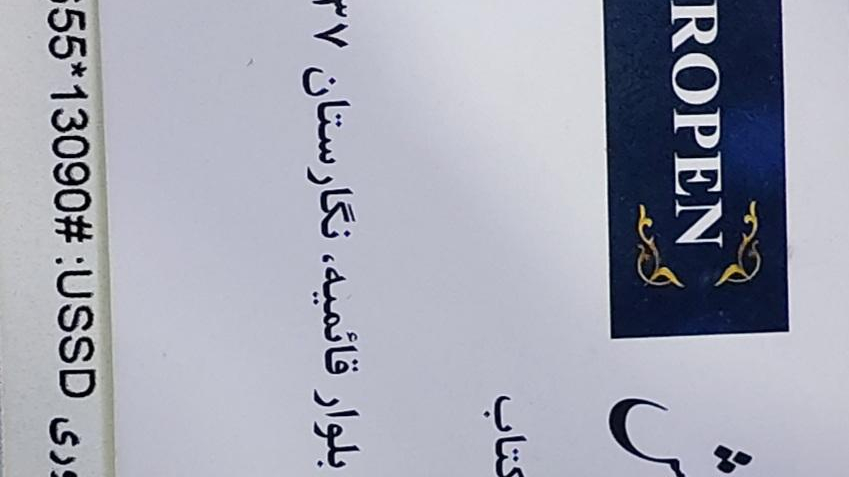 ROPEN
کتاب
بلوار قائمیه، نگارستان ۳۷
655*13090# :USSD